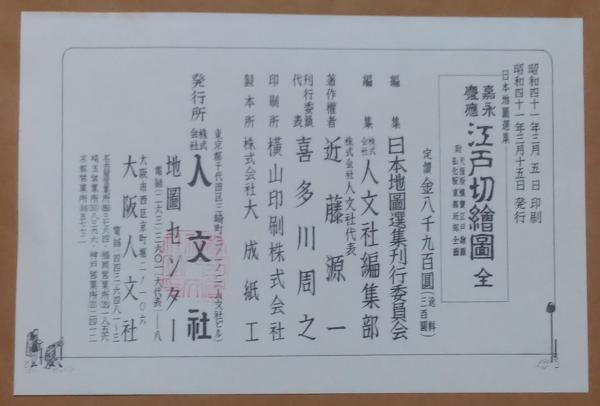 昭和四十一年三月五日 印刷
昭和四十一年三月十五日 発行
日本地圖選集
嘉永
慶應
江戸切繪圖 全
定價 金八千九百圓(送料三百圓)
編集 日本地圖選集刊行委員会
編集 株式会社 人文社編集部
株式会社人文社代表
著作権者 近藤源一
刊行委員代表 喜多川周之
印刷所 横山印刷株式会社
製本所 株式会社大成紙工
発行所 株式会社 人文社
東京都千代田区三崎町
地圖センター
大阪市西区京町堀二ノ一〇六
大阪人文社